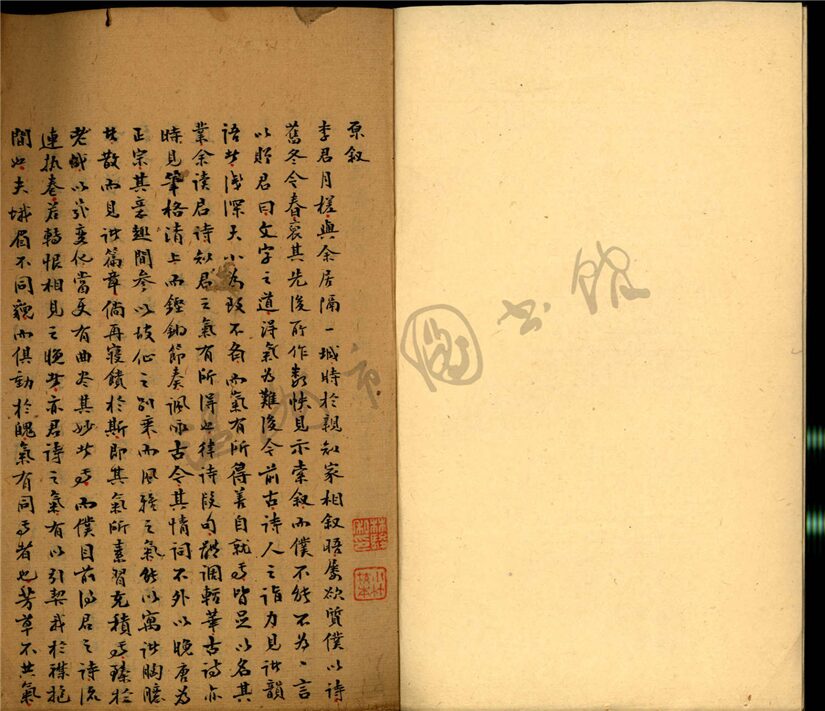 原叙
李君月槎與余居隔一城時於親知家相叙晤屡欲質僕以詩
舊冬今春裒其先後所作數帙見示索叙而僕不能不為一言
以贈君曰文字之道得氣為難後今前古詩人之詣力見諸韻
語淺深大小為致不为而氣有所得善自就焉皆足以名其
業余讀君詩知君之氣有所得也律詩段句諧調輕華古詩亦
時見筆格清上而鏗鏘節奏諷咏古今其情詞不外以晚唐為
正宗其意趣間参以之別乘而風騷之氣能以寓諸胸臆
散而見諸篇章倘再寝饋於斯即其氣所素習充積焉臻於
老成以變化當更有曲尽其妙焉而僕目前得君之詩流
連抵卷若轉恨相見之晚亦君詩之氣有以引契我於襟抱
間也夫蛾眉不同貌而俱動於魄氣有同焉者也芳草不共氣
温州市圖書館